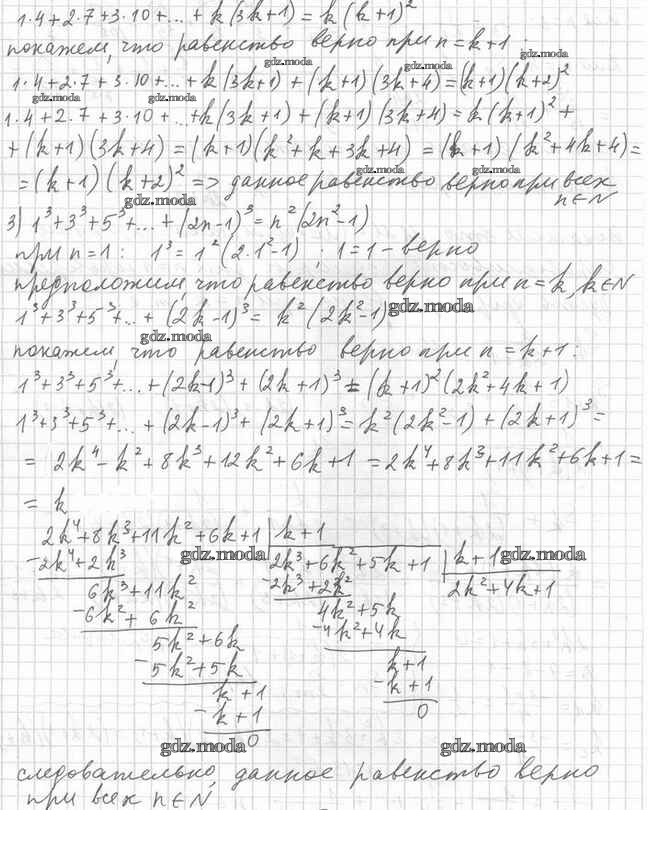 1·4+2·7+3·10+...+k(3k+1)=k(k+1)²
покажем, что равенство верно при n=k+1:
gdz.moda
gdz.moda
1·4+2·7+3·10+...+k(3k+1)+(k+1)(3k+4)=(k+1)(k+2)²
gdz.moda gdz.moda gdz.moda
1·4+2·7+3·10+...+k(3k+1)+(k+1)(3k+4)=k(k+1)²+
+(k+1)(3k+4)=(k+1)(k²+k+3k+4)=(k+1)(k²+4k+4)=
gdz.moda gdz.moda
=(k+1)(k+2)² => данное равенство верно при всех
n∈N
gdz.moda
3) 1³+3³+5³+...+(2n-1)³=n²(2n²-1)
при n=1: 1³=1²(2·1²-1); 1=1 – верно
предположим, что равенство верно при n=k, k∈N
1³+3³+5³+...+(2k-1)³=k²(2k²-1)
gdz.moda
gdz.moda
покажем, что равенство верно при n=k+1:
1³+3³+5³+...+(2k-1)³+(2k+1)³=(k+1)²(2k²+4k+1)
1³+3³+5³+...+(2k-1)³+(2k+1)³=k²(2k²-1)+(2k+1)³=
=2k⁴-k²+8k³+12k²+6k+1=2k⁴+8k³+11k²+6k+1=
=k
2k⁴+8k³+11k²+6k+1 | k+1
-2k⁴+2k³ gdz.moda 2k³+6k²+5k+1 | k+1 gdz.moda
6k³+11k² -2k³+2k² 2k²+4k+1
-6k²+6k² 4k²+5k
5k²+6k -4k²+4k
-5k²+5k k+1
k+1 -k+1
-k+1 0
0
gdz.moda gdz.moda
следовательно, данное равенство верно
при всех n∈N